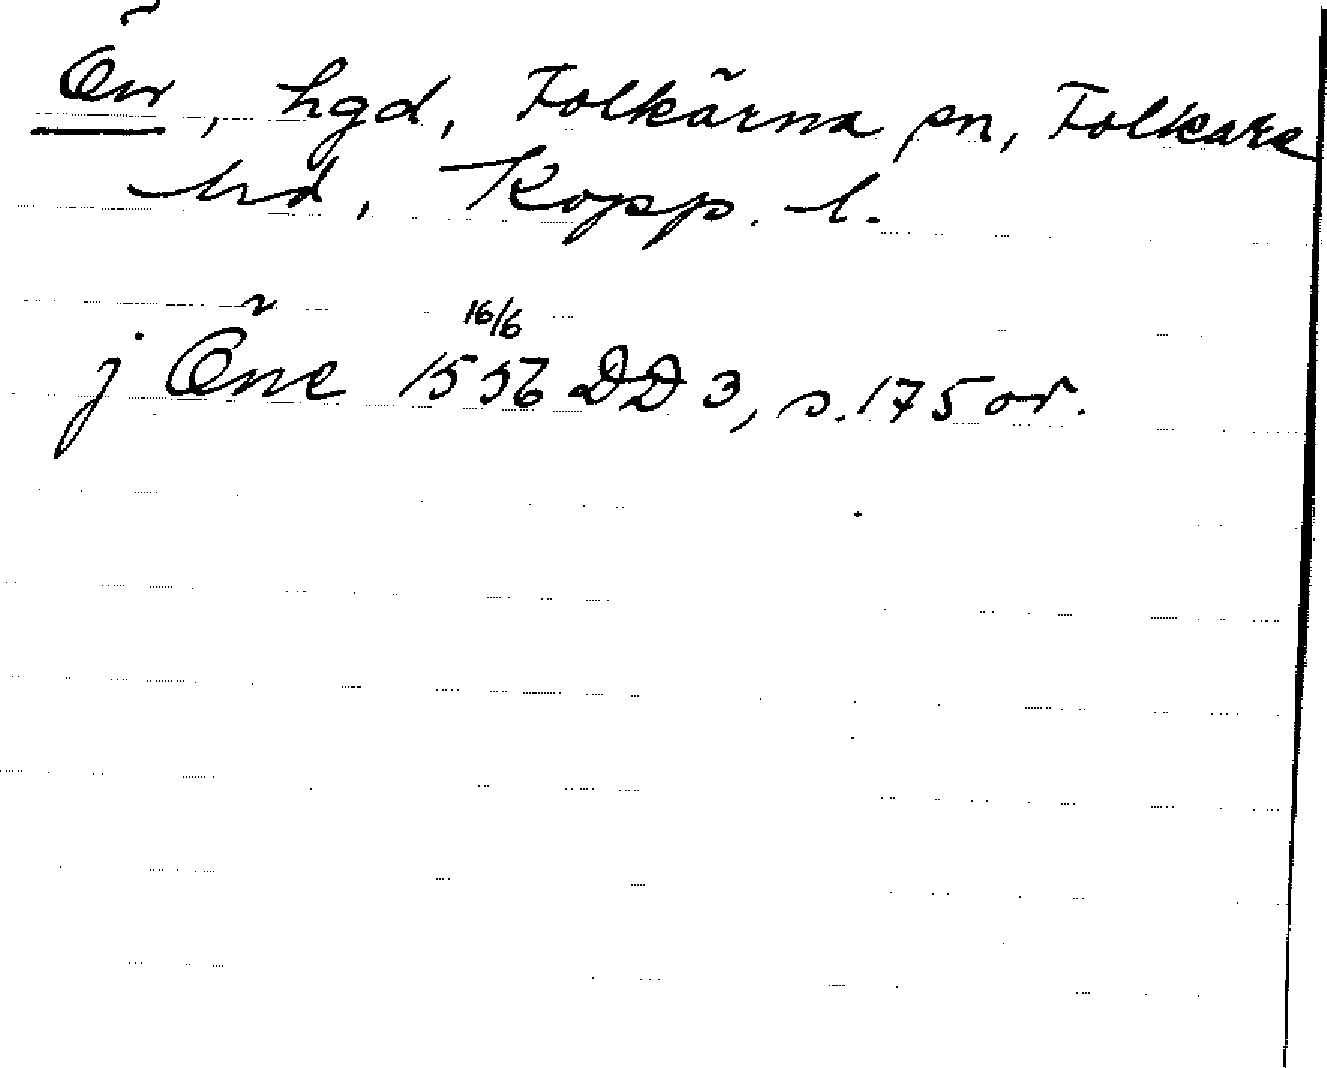 Ön, hgd, Folkärna sn, Folkare
hd, Kopp. l.
j Öne 16/6 1556 DD 3, s. 175 or.